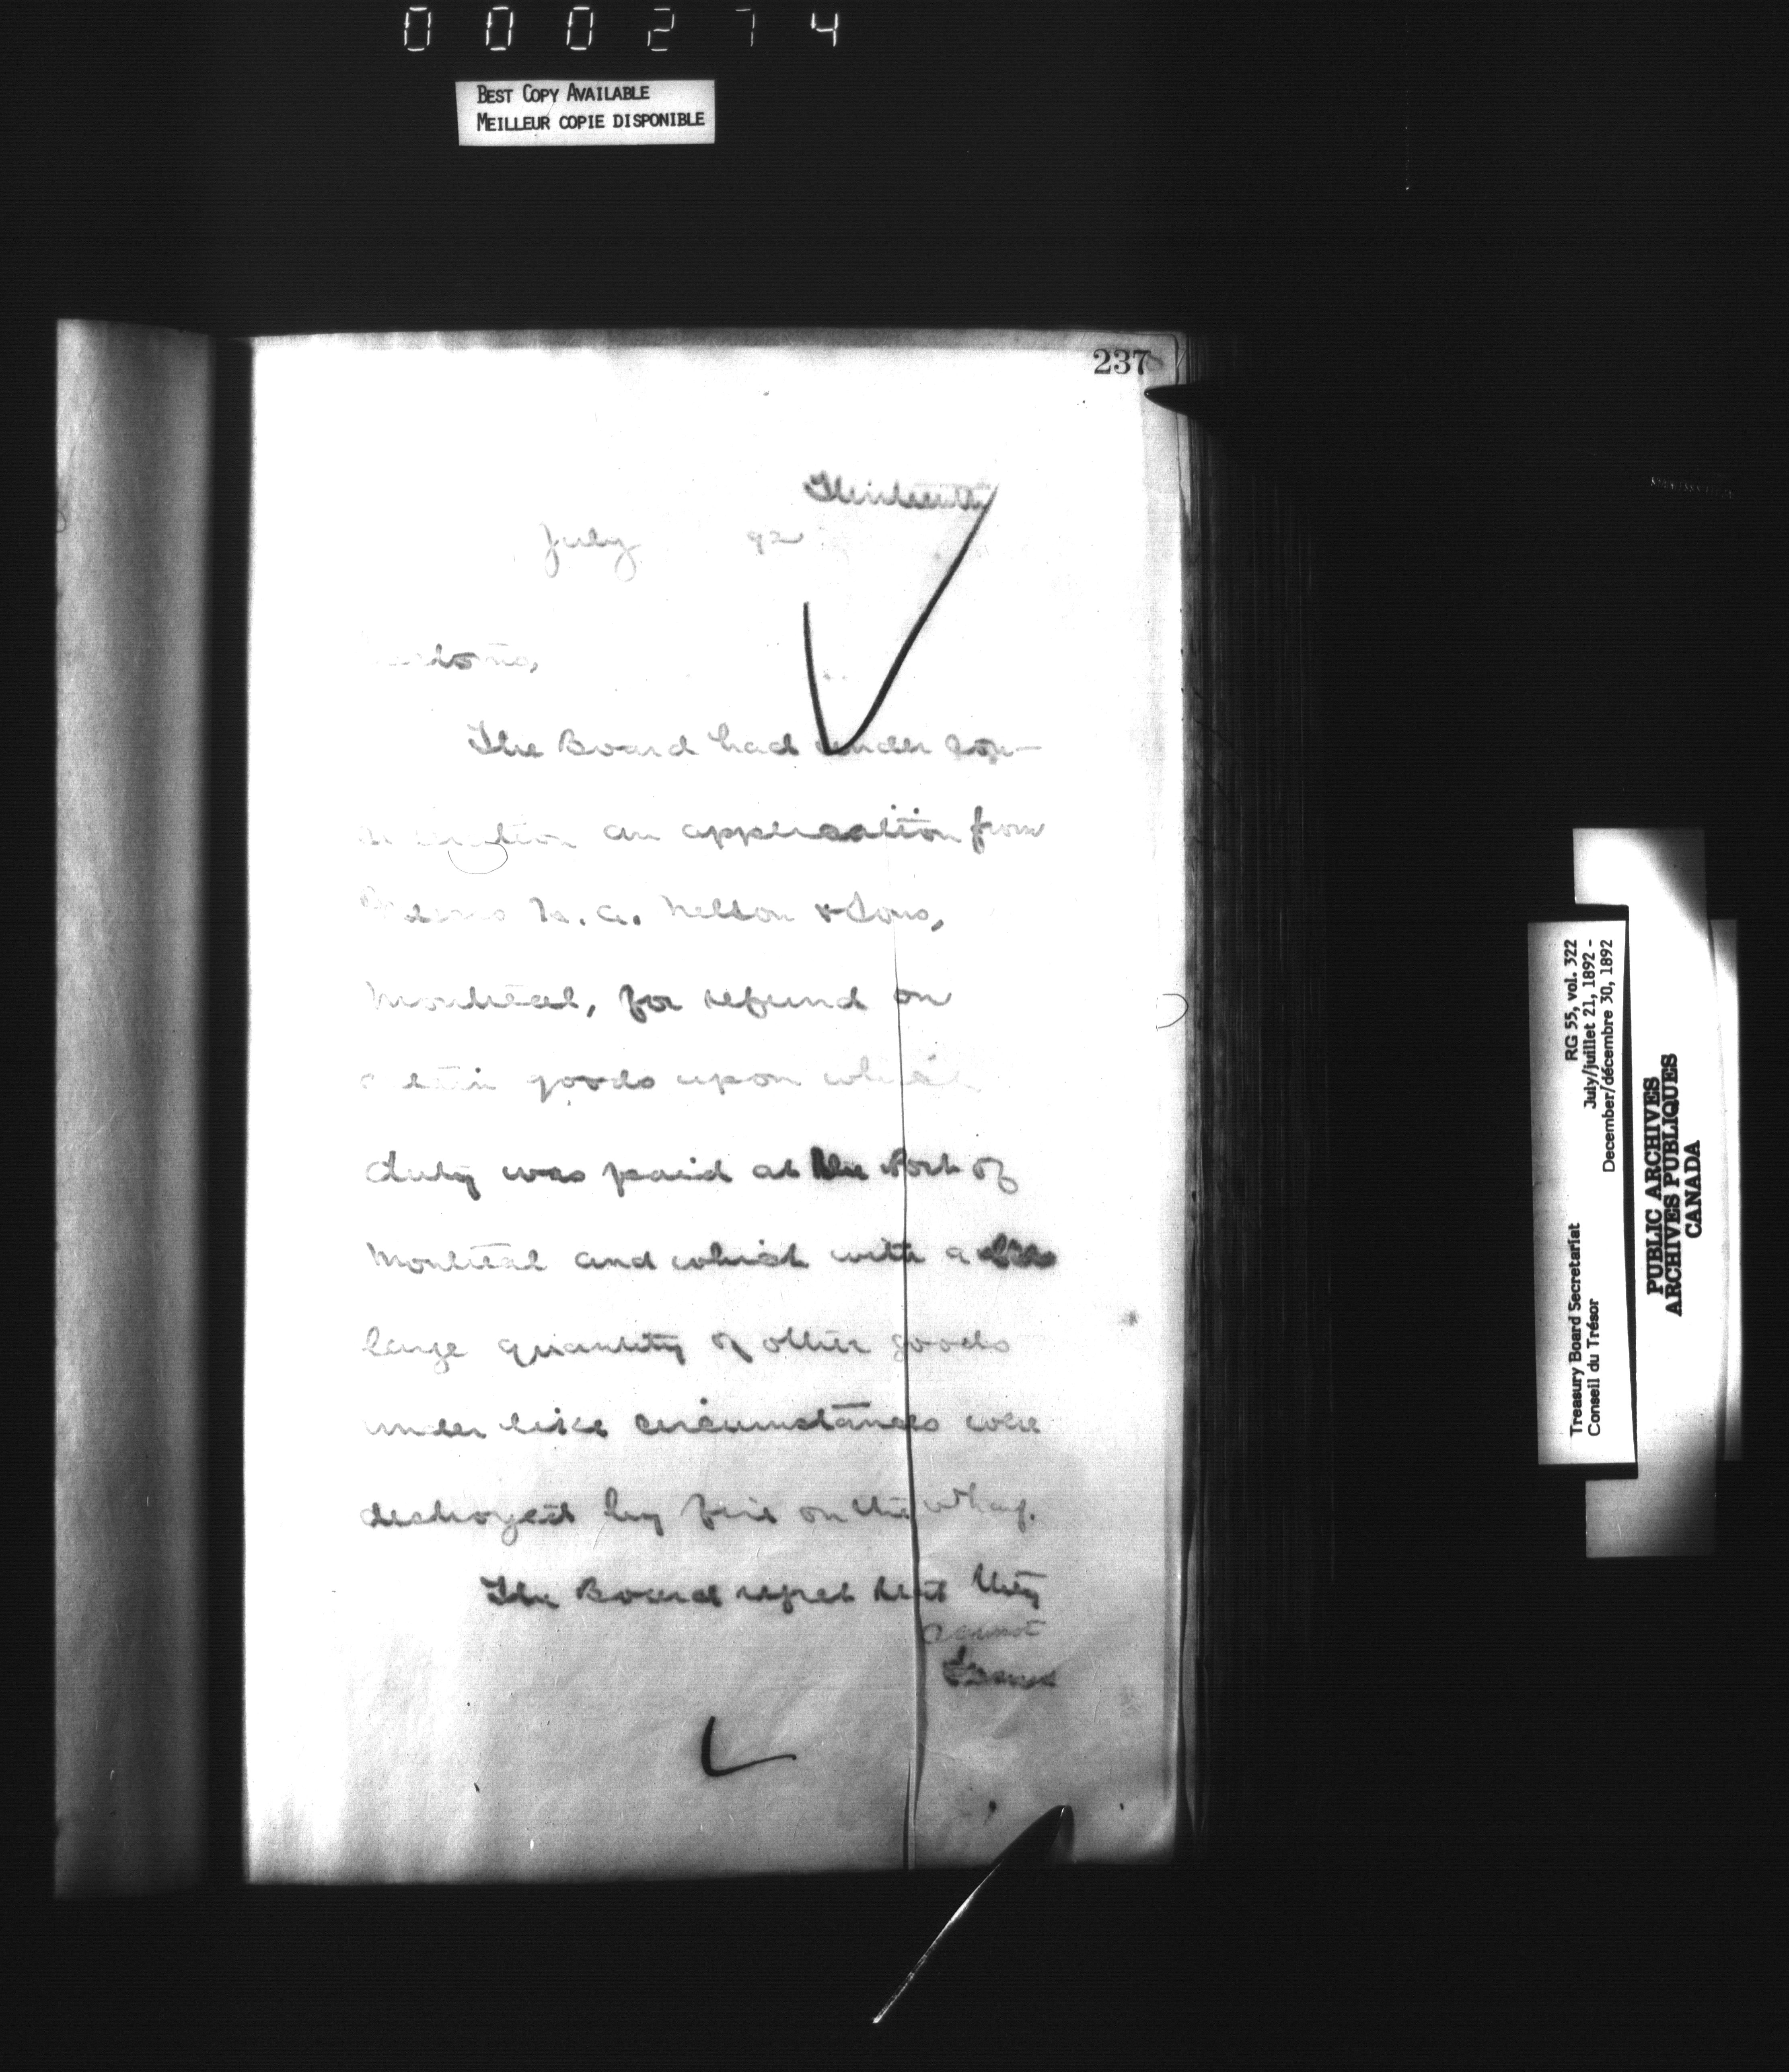 000274
BEST COPY AVAILABLE
MEILLEUR COPIE DISPONIBLE
237
July 92
The Board had under con-
an application from
H. A. Nelson & Sons,
Montreal, for refund on
goods upon which
duty was paid at the Port of
Montreal and which with a
large quantity of other goods
under like circumstances were
destroyed by fire on the wharf.
The Board regret that they
cannot
RG 55, vol. 322
Treasury Board Secretariat July/juillet 21, 1892 -
Conseil du Trésor December/décembre 30, 1892
PUBLIC ARCHIVES
ARCHIVES PUBLIQUES
CANADA